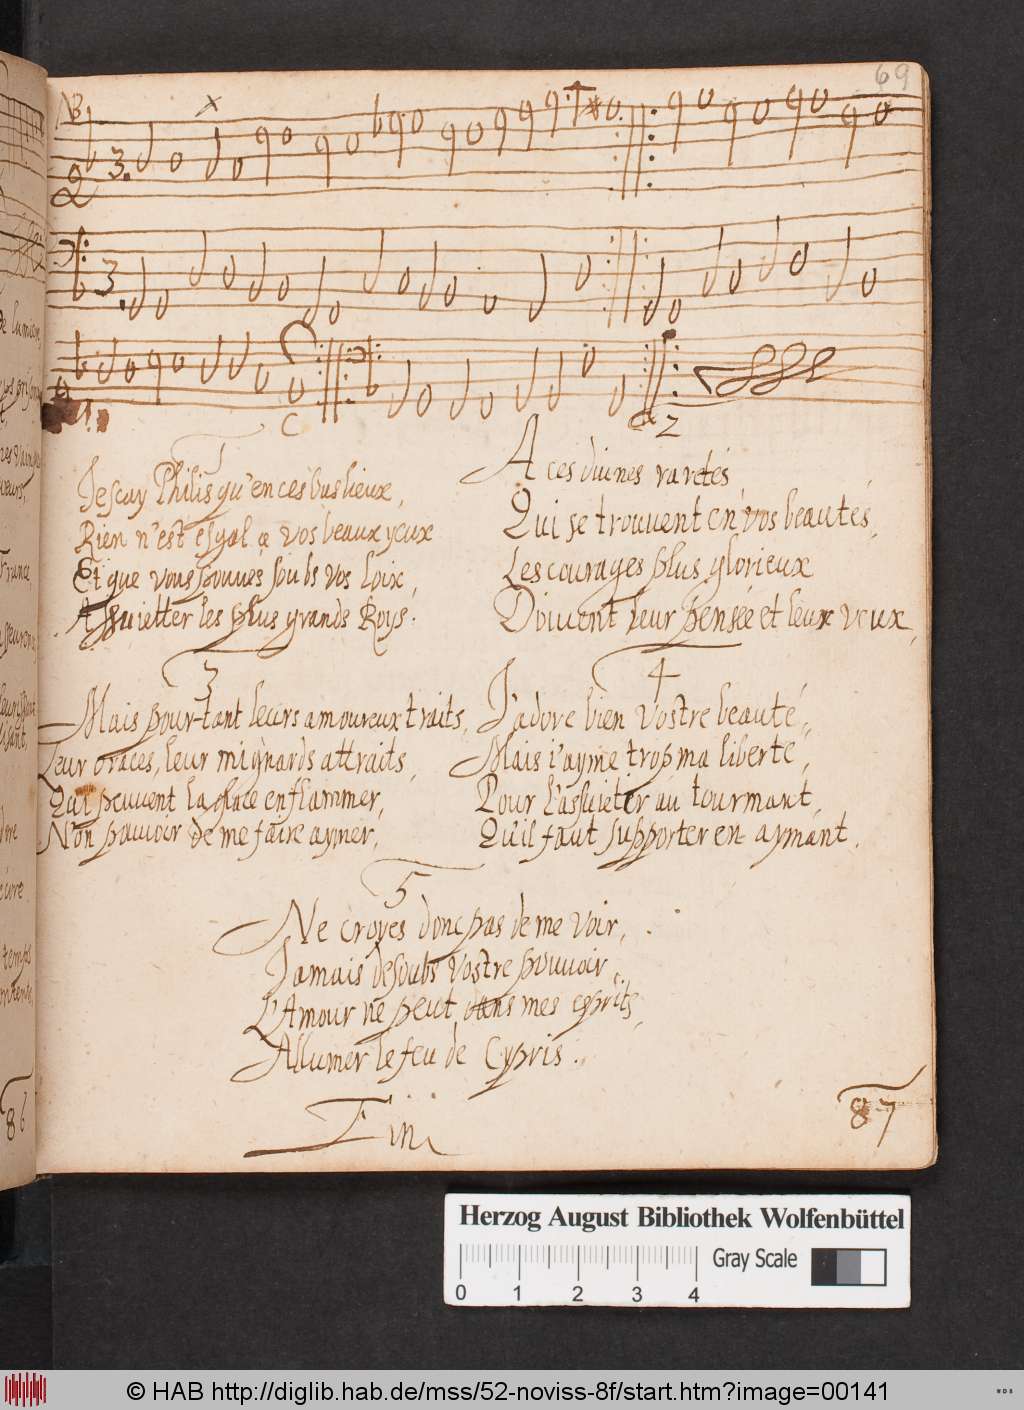 69
NB
3.
3.
C
2
1
Je scay Philis qu'en ces bas lieux,
Rien n'est esgal a vos beaux yeux
Et que vous pouves soubs vos loix,
Assuietter les plus grands Roys.
A ces diuines raretés
Qui se trouuent en vos beautés,
Les courages plus glorieux
Doiuent leur pensée et leux veux,
3
Mais pour-tant leurs amoureux traits,
Leur Graces, leur mignards attraits,
Qui peuuent la glace enflammer,
N'on pouuoir de me faire aymer,
4
J'adore bien vostre beauté,
Mais i'ayme trop ma liberté,
Pour l'assuietir au tourmant,
Qu'il faut supporter en aymant.
5
Ne croyes donc pas de me voir,
Jamais desoubs vostre pouuoir,
L'Amour ne peut dans mes esprits,
Allumer le feu de Cypris.
Fin
87
86
Herzog August Bibliothek Wolfenbüttel
Gray Scale
0 1 2 3 4
© HAB http://diglib.hab.de/mss/52-noviss-8f/start.htm?image=00141